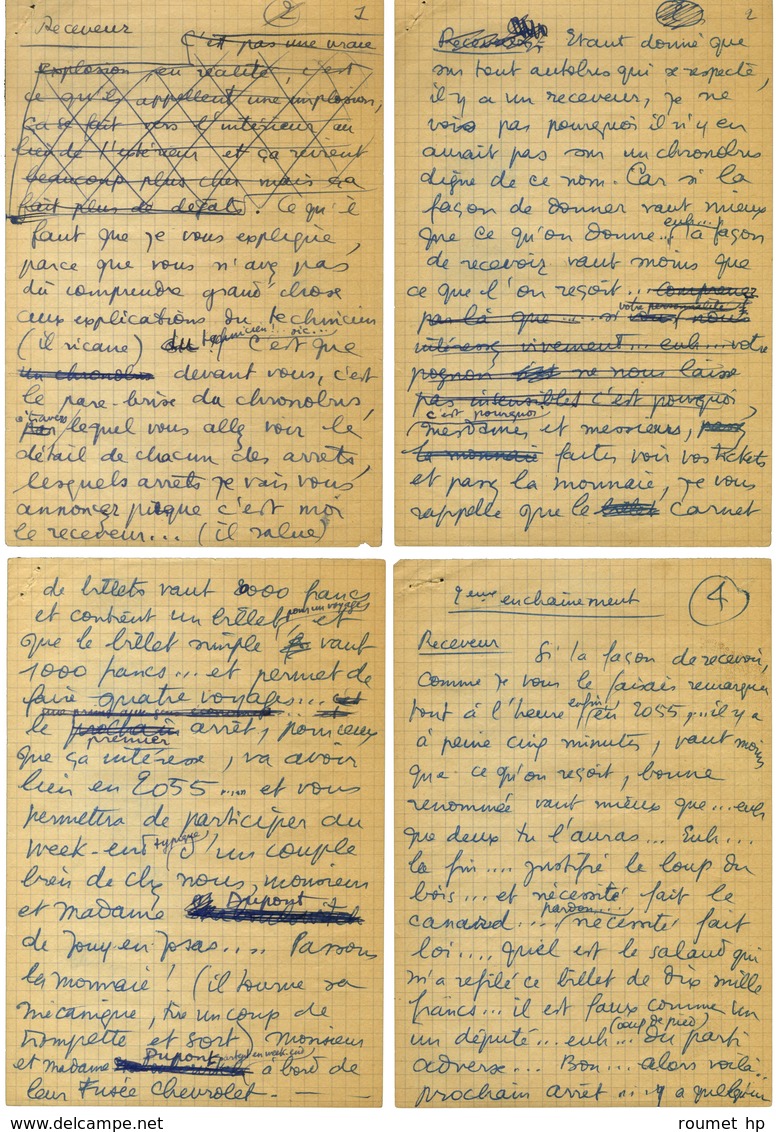 2 1
Receveur
C'est pas une vraie
explosion, en réalité, c'est
ce qu'ils appellent une implosion,
ça se fait vers l'intérieur au
lieu de l'extérieur et ça revient
beaucoup plus cher mais ça
fait plus de dégats. Ce qu'il
faut que je vous explique,
parce que vous n'avez pas
dû comprendre grand'chose
aux explications du technicien
(il ricane) du technicien! .. sic... C'est que
un chronobus devant vous, c'est
le pare-brise du chronobus,
à travers
par lequel vous allez voir le
détail de chacun des arrêts,
lesquels arrêts je vais vous
annoncer puisque c'est moi
le receveur... (il salue)
2
Receveur Etant donné que
sur tout autobus qui se respecte,
il y a un receveur, je ne
vois pas pourquoi il n'y en
aurait pas sur un chronobus
digne de ce nom. Car si la
façon de donner vaut mieux
que ce qu'on donne.. euh... la façon
de recevoir vaut moins que
ce que l'on reçoit... comprenez
par là que ..... si votre personnalité vous nous
intéresse vivement... euh... votre
pognon ne nous laisse
pas insensibles c'est pourquoi,
c'est pourquoi
mesdames et messieurs, passez
la monnaie faites voir vos tickets
et passez la monnaie, je vous
rappelle que le billet carnet
de billets vaut 8000 francs
et contient un billet, pour un voyage, et
que le billet simple vaut
1000 francs... et permet de
faire quatre voyages... est
le prochain arrêt, pour ceux
premier
que ça intéresse, va avoir
lieu en 2055 .... et vous
permettra de participer au
week-end typique, d'un couple
bien de chez nous, monsieur
et madame Dupont
de Jouy-en-Josas.... Passons
la monnaie! (il tourne sa
mécanique, tire un coup de
trompette et sort) Monsieur
et madame Dupont partent en week-end à bord de
leur Fusée Chevrolet. — —
2eme enchainement 4
Receveur Si la façon de recevoir,
comme je vous le faisais remarquer
tout à l'heure enfin, en 2055, ... il y a
à peine cinq minutes, vaut moins
que ce qu'on reçoit, bonne
renommée vaut mieux que... euh
que deux tu l'auras... Euh...
la fin.... justifie le loup du
bois... et nécessité fait le
canard.... pardon... nécessité fait
loi.... quel est le salaud qui
m'a refilé ce billet de dix mille
francs... il est faux comme un
un député... euh... (coup de pied) du parti
adverse... Bon... alors voilà..
prochain arrêt ... il y a quelqu'un
roumet hp